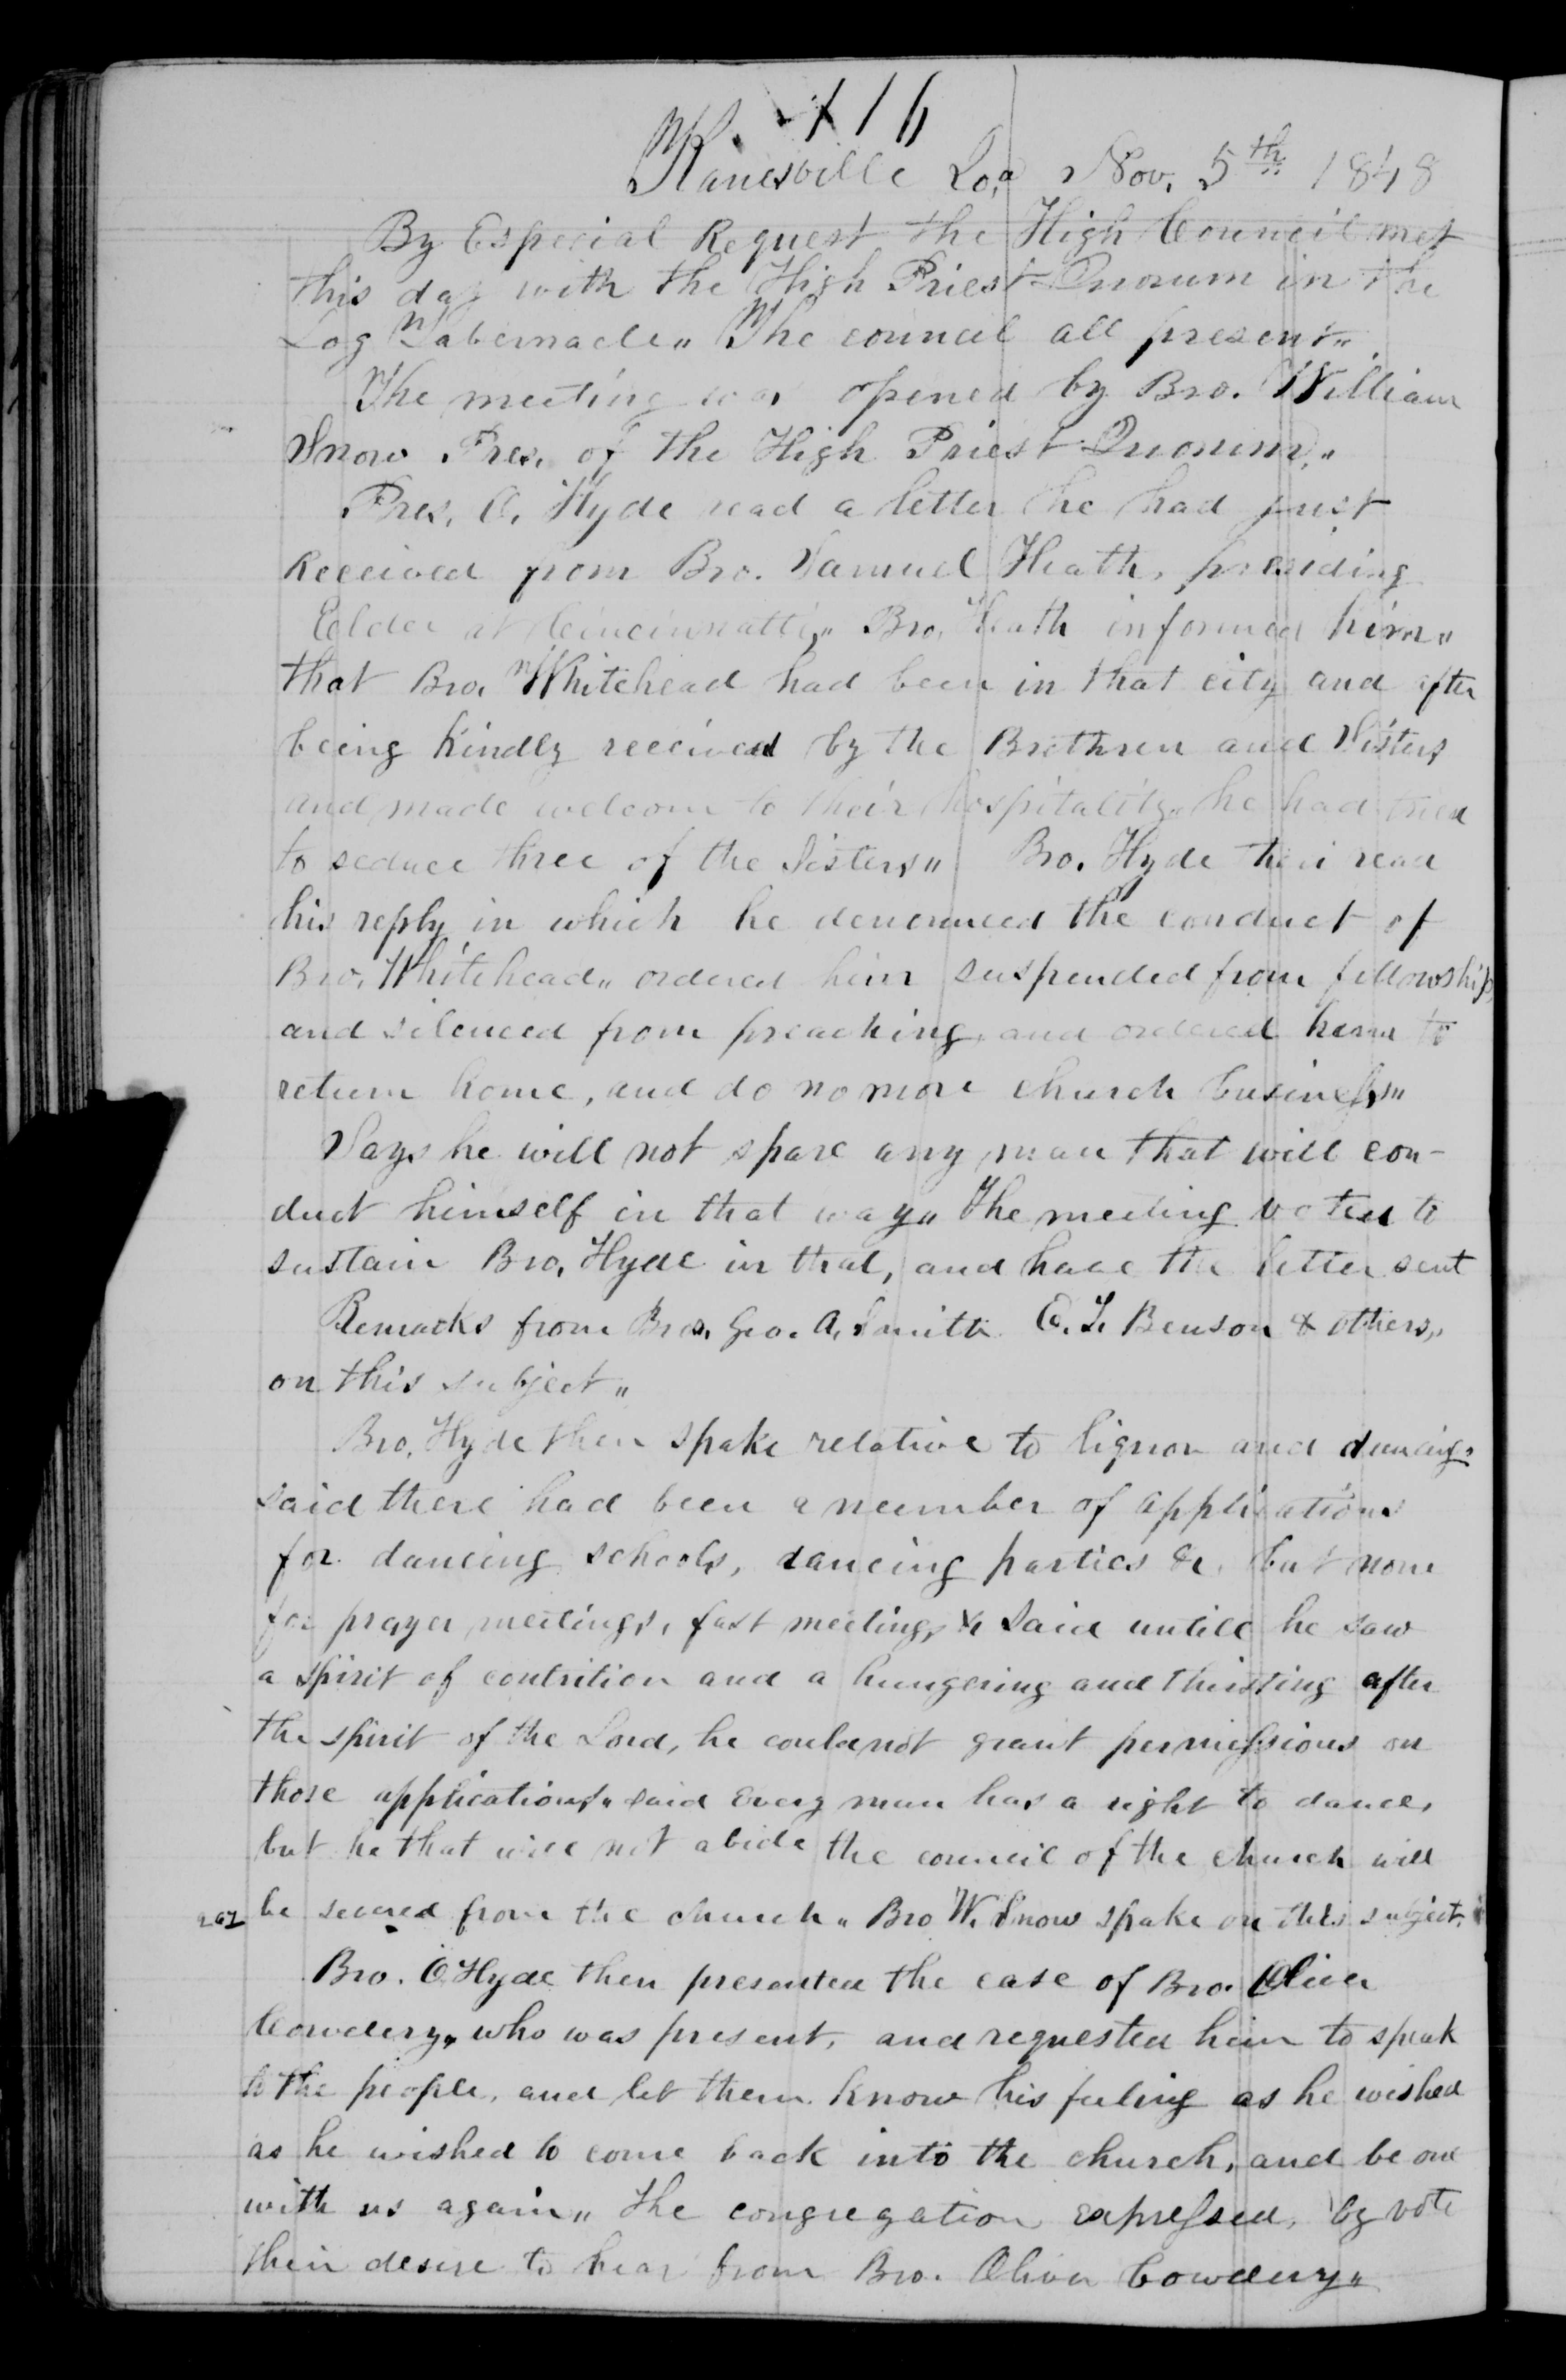 116
Kanesville Ioa Nov. 5th 1848
By Especial Request the High Council met
this day with the High Priest Quorum in the
Log Tabernacle„ The council all present„
The meeting was opened by Bro. William
Snow Pres. of the High Priest Quorum„
Pres. O. Hyde read a letter he had just
Received from Bro. Samuel Heath, presiding
Elder at Cincinnatti„ Bro. Heath informed him„
that Bro. Whitehead had been in that city and after
being kindly received by the Brethren and Sisters
and made welcom to their hospitality„ he had tried
to seduce three of the Sisters„ Bro. Hyde then read
his reply in which he denounced the conduct of
Bro. Whitehead„ ordered him suspended from fellowship,
and silenced from preaching, and ordered him to
return home, and do no more church business„
Says he will not spare any man that will con-
duct himself in that way„ The meeting voted to
sustain Bro. Hyde in that, and have the letter sent
Remarks from Bros. Geo. A. Smith E. T. Benson & others„
on this subject„
Bro. Hyde then spake relative to liquor and dancing.
said there had been a number of applications
for dancing schools, dancing parties &c, but none
for prayer meetings, fast meetings &c Said untill he saw
a spirit of contrition and a hungering and thirsting after
the spirit of the Lord, he could not grant permissions on
those applications„ said Every man has a right to dance,
but he that will not abide the council of the church will
be severed from the church„ Bro W. Snow spake on this subject.
Bro. O Hyde then presented the case of Bro. Oliver
Cowdery, who was present, and requested him to speak
to the people, and let them know his feeling as he wished
as he wished to come back into the church, and be one
with us again„ The congregation expressed, by vote
their desire to hear from Bro. Oliver Cowdery„